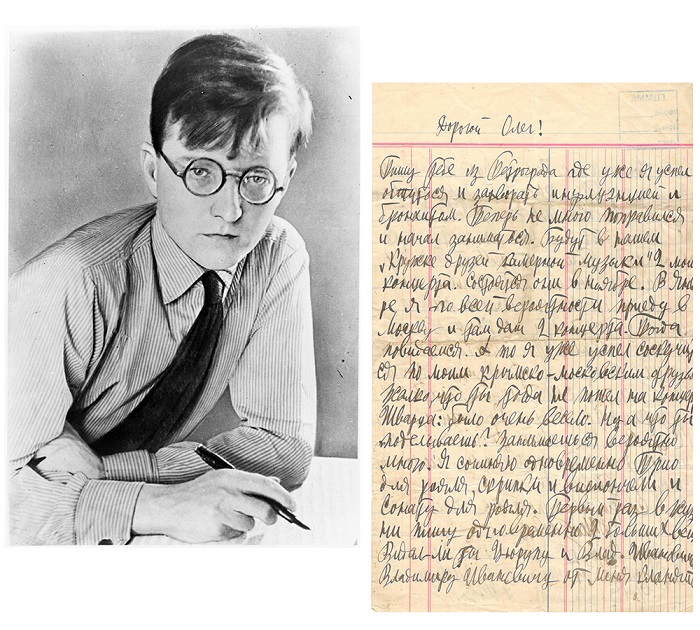 Дорогой Олег!
Пишу Тебе из Петрограда где уже я успел
и захворать инфлуэнцией и
бронхитом. Теперь не много поправился
и начал заниматься. Будут в нашем
„Кружке друзей камерной музыки" 2 мои
концерта. Состоятся они в ноябре. В Янв
ре я по всей вероятности приеду в
Москву и там дам 2 концерта. Тогда
повидаемся. А то я уже успел соскучи
ся по моим крымско-московским друзь
Жалко что ты тогда не пошел на концер
Шварца: было очень весело. Ну а что ты
поделываешь? Занимаешься вероятно
много. Я сочиняю одновременно Трио
для рояля, скрипки и виолончели и
Сонату для рояля. Первый раз в жиз
ни пишу одновременно 2 больших вещ
Видал ли ты и Влад. Ивановича
Владимиру Ивановичу от меня кланяйся